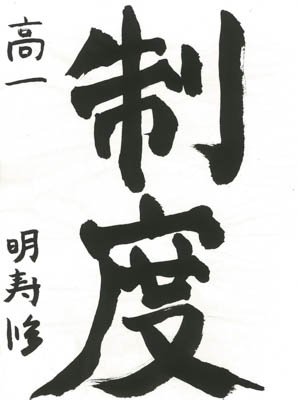 制度
高一
明寿修